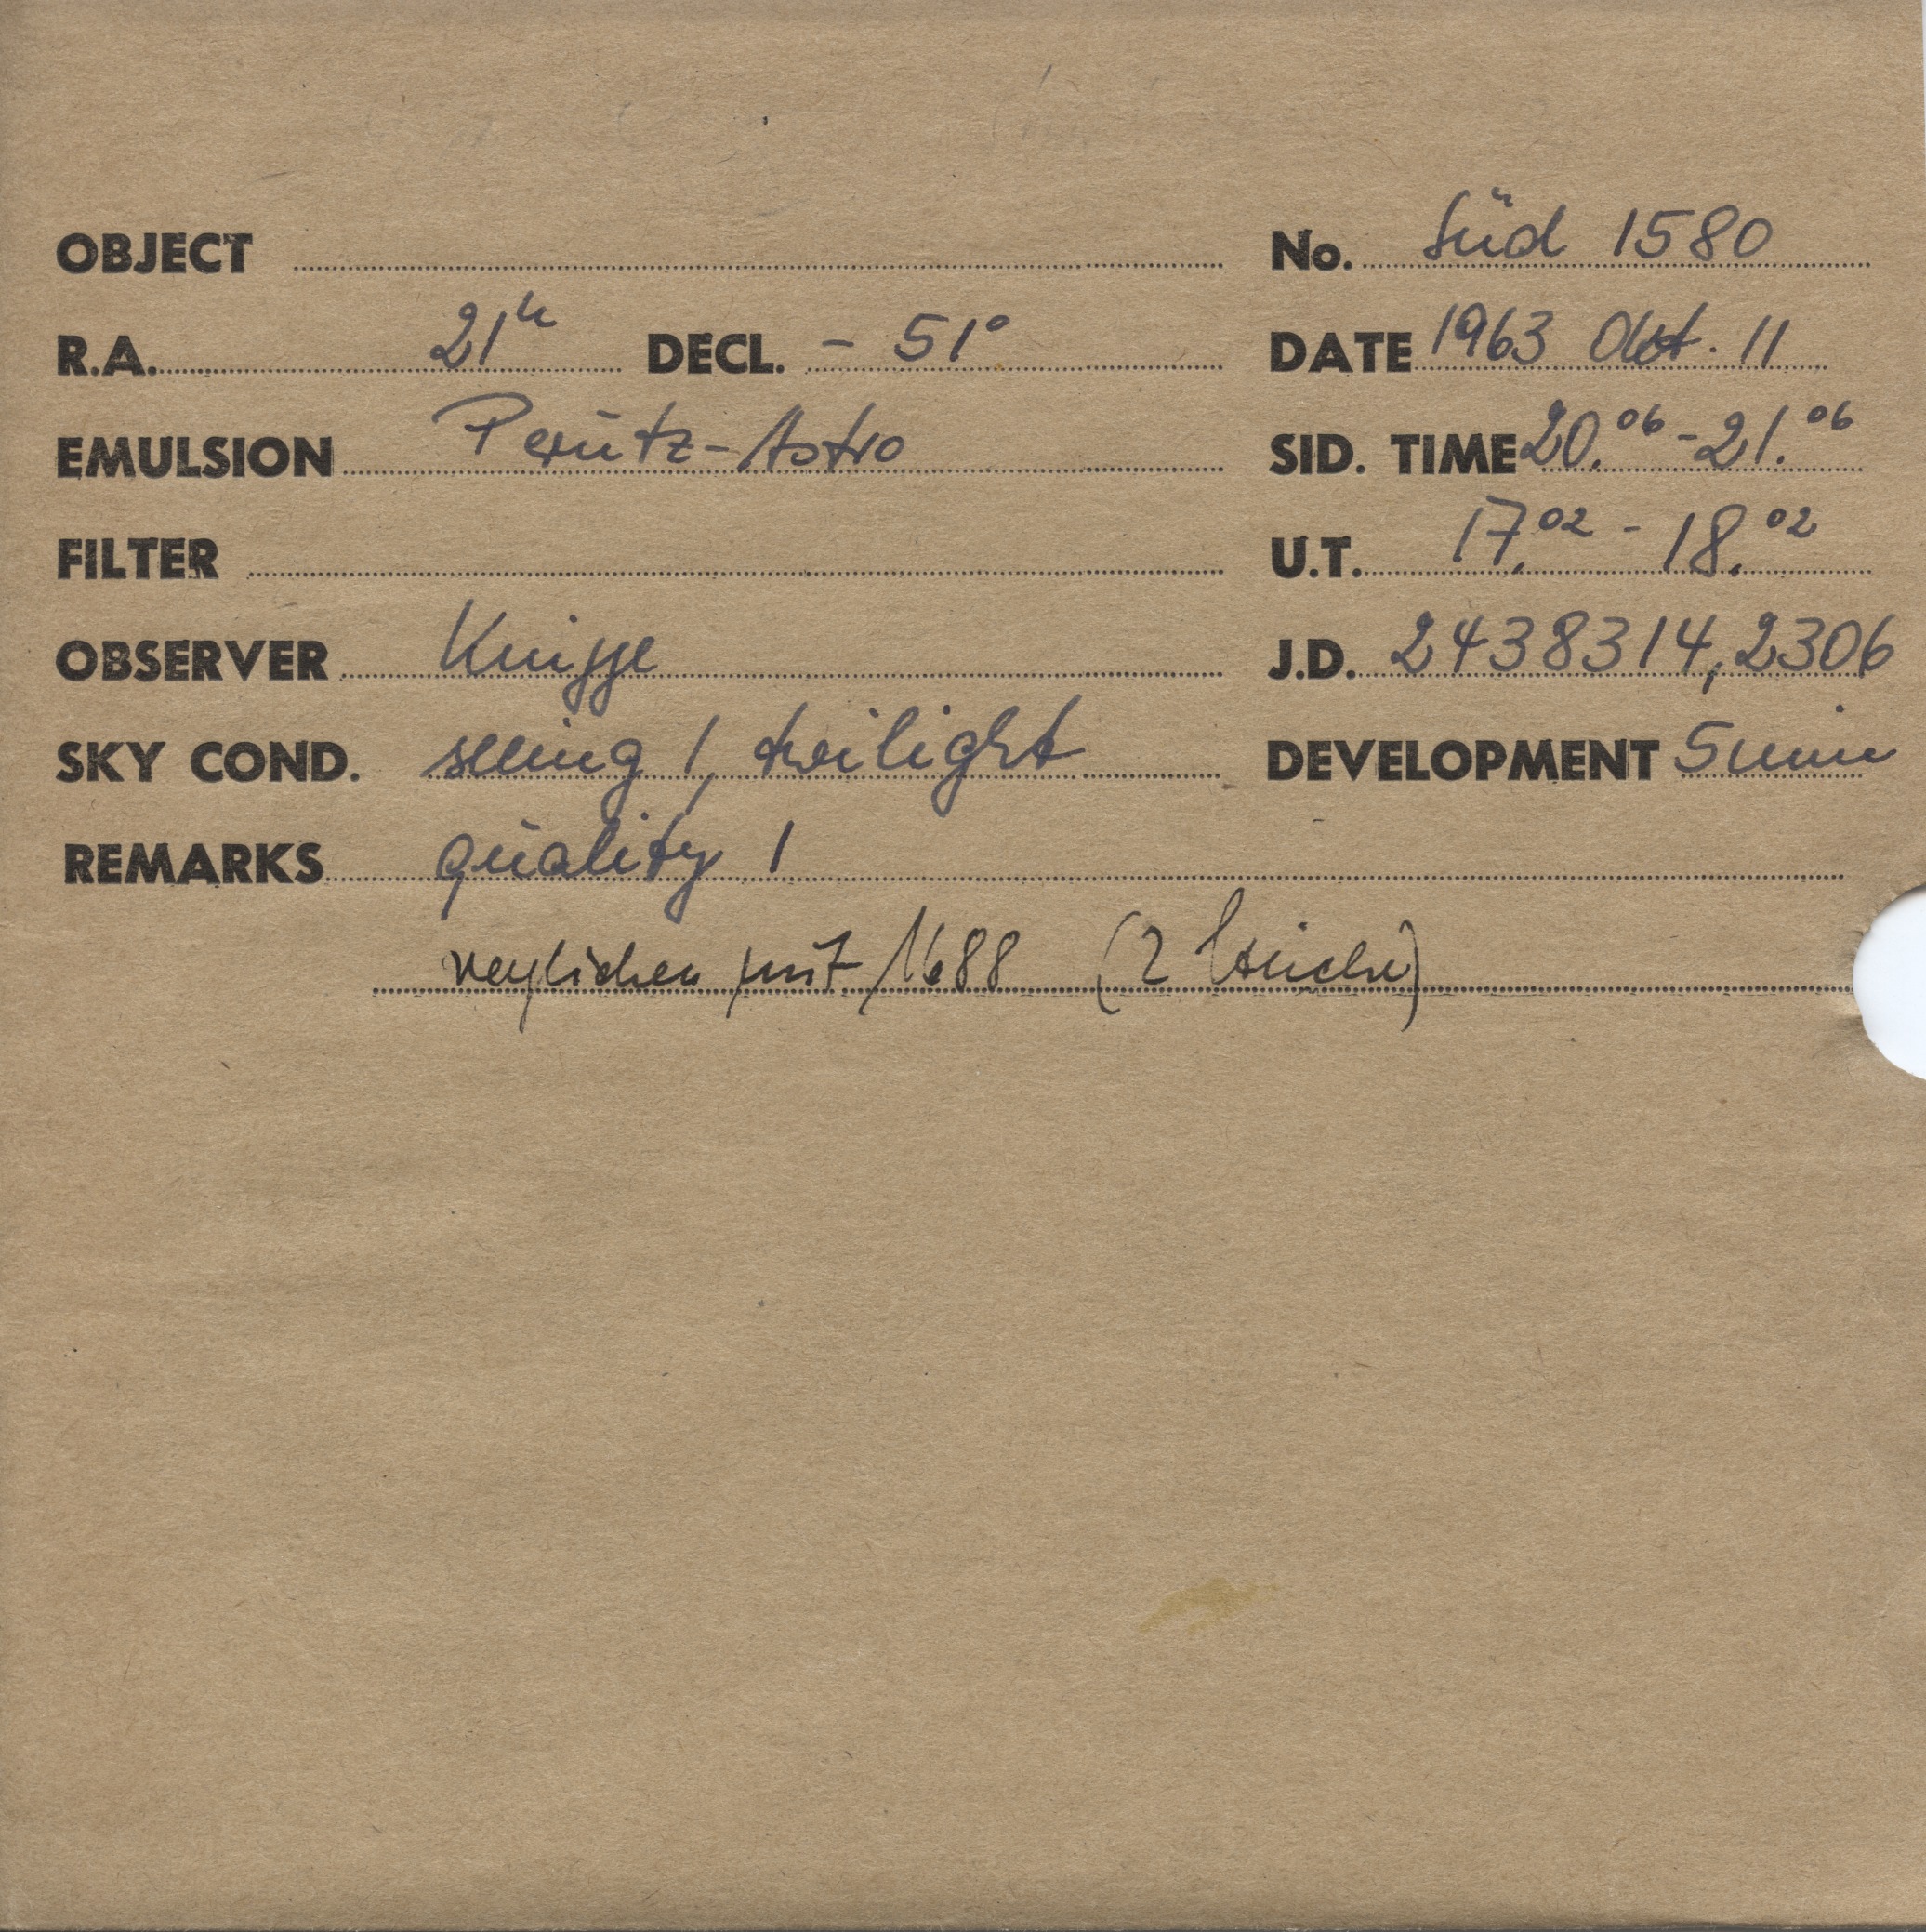 OBJECT No. Süd 1580
R.A. 21h DECL. - 51° DATE 1963 Okt. 11
EMULSION Perutz-Astro SID. TIME 20.06 - 21.06
FILTER U.T. 17.02 - 18.02
OBSERVER Knigge J.D. 2438314,2306
SKY COND. seeing 1, twilight DEVELOPMENT 5 min
REMARKS quality 1
verglichen mit 1688 (2